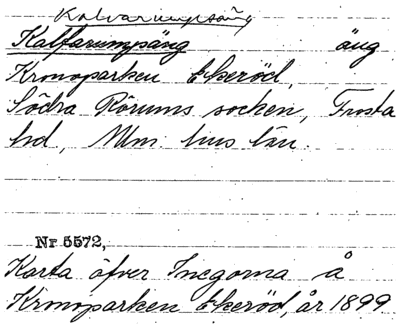 Kalvarumpsäng
Kalfarumpäng äng
Kronoparken Ekeröd,
Södra Rörums socken, Frosta
hd, Mlm. hus län.
Nr 5572,
Karta öfver Inegorna å
Kronoparken Ekeröd, år 1899